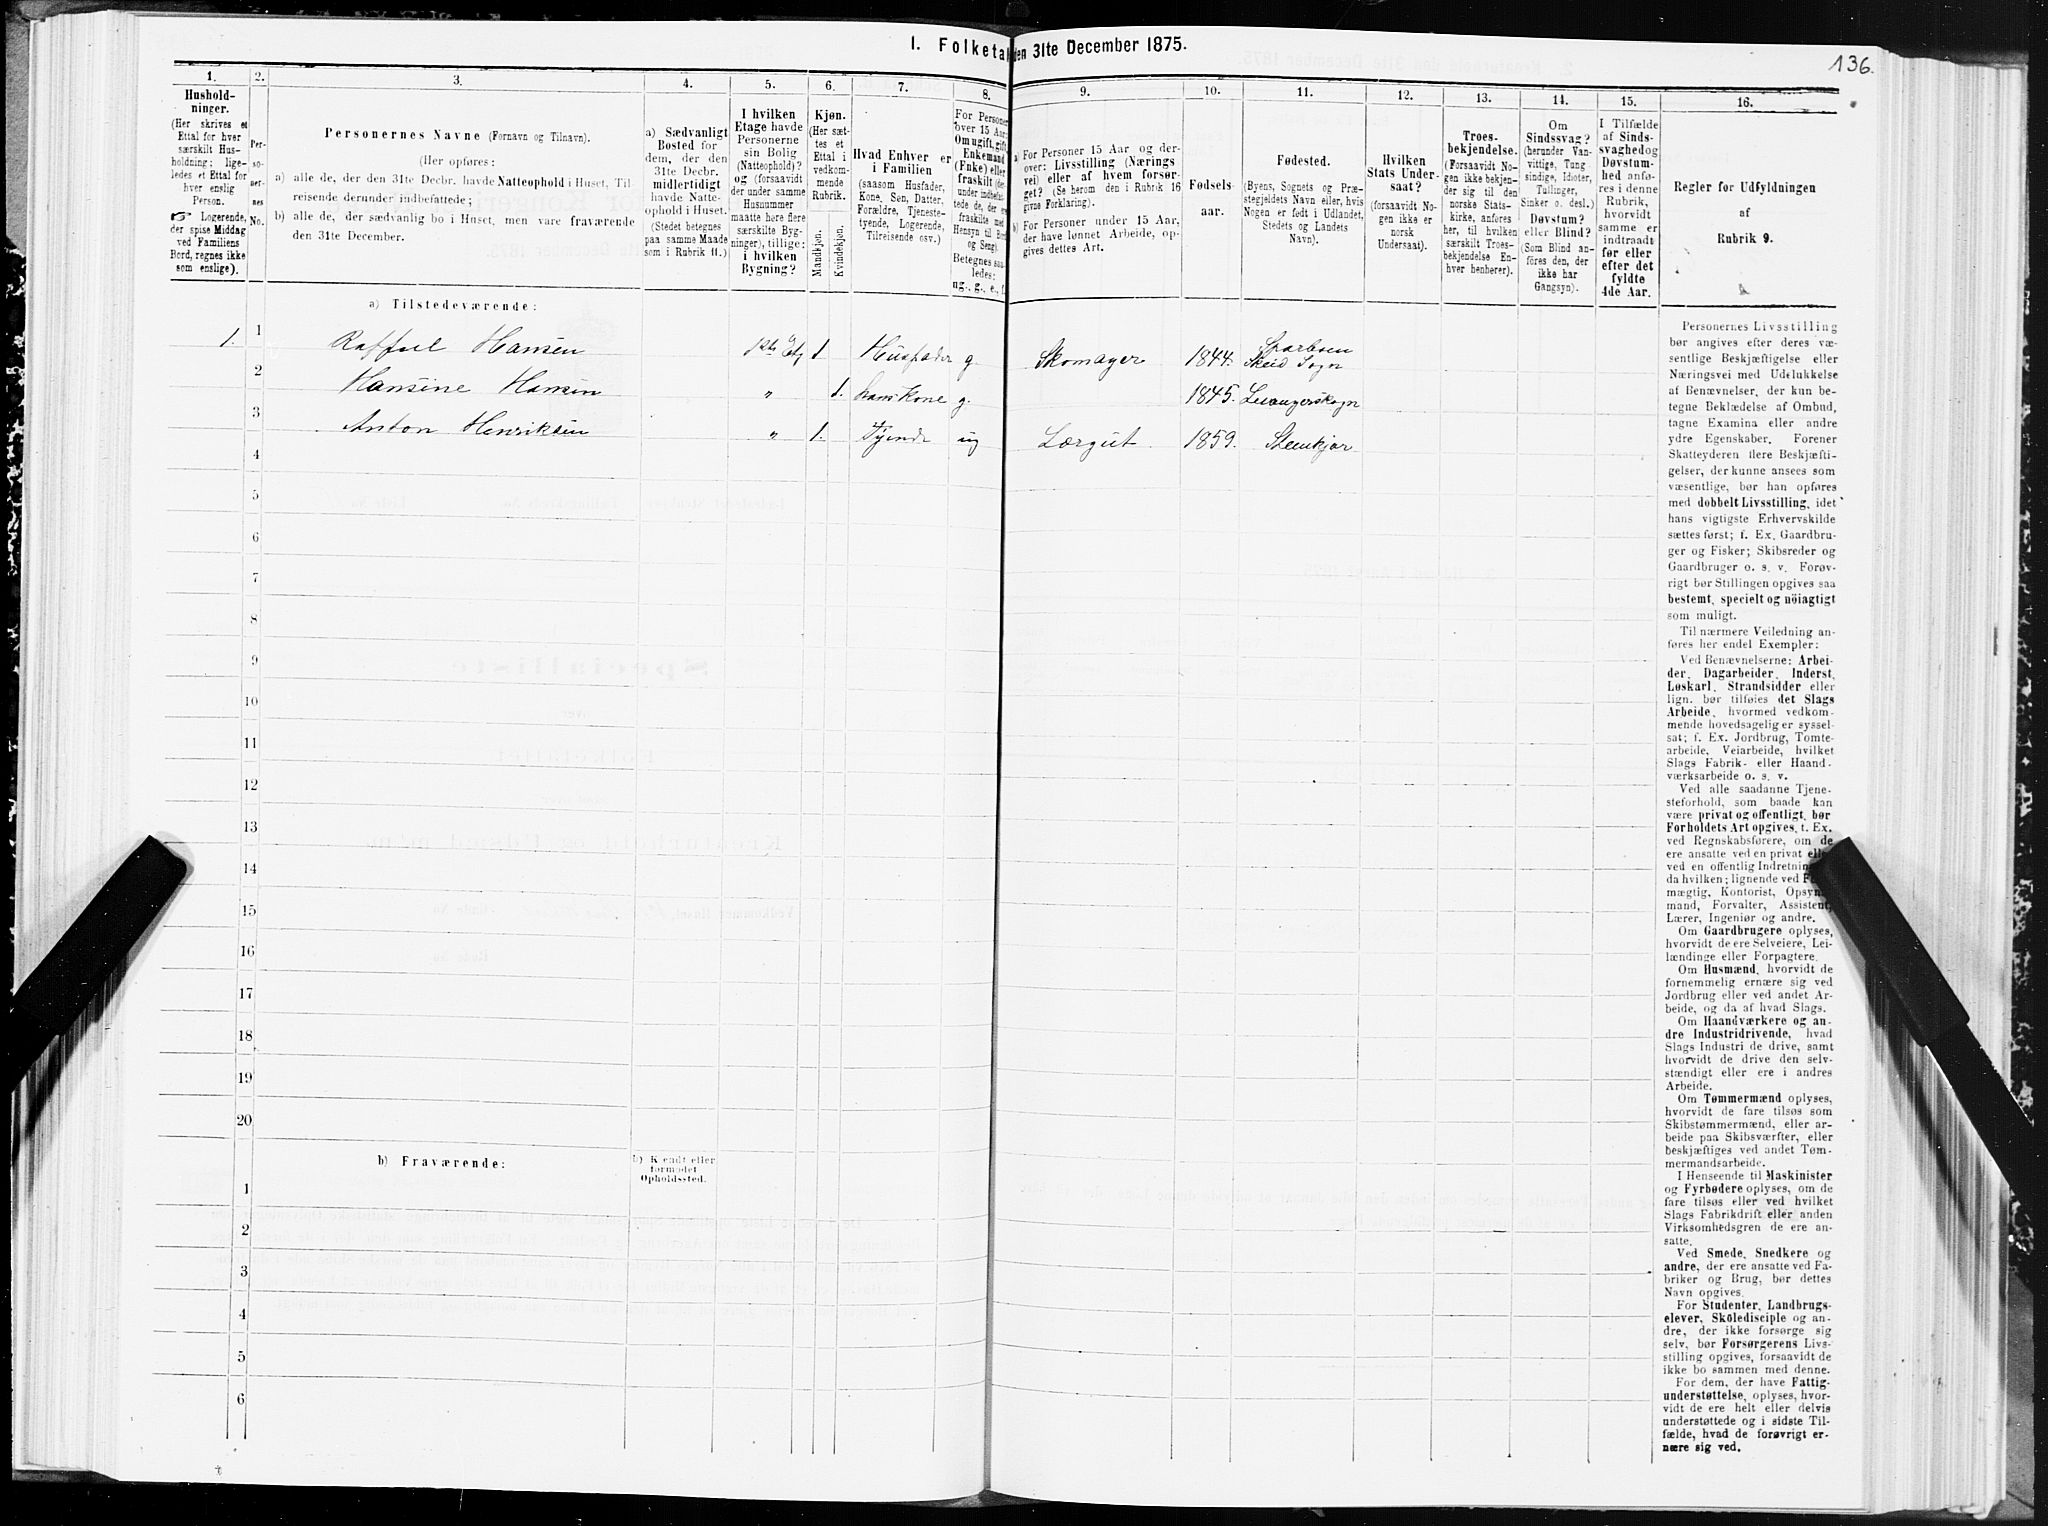 136.
I. Folketal den 31te December 1875.
1.
Hushold-
ninger.
(Her skrives et
Ettal for hver
særskilt Hus-
holdning; lige-
ledes et Ettal for
hver enslig
Person.
☞ Logerende,
der spise Middag
ved Familiens
Bord, regnes ikke
som enslige).
2.
Per-
so-
ner-
nes
No.
3.
Personernes Navne (Fornavn og Tilnavn).
(Her opføres:
a) alle de, der den 31te Decbr. havde Natteophold i Huset, Til-
reisende derunder indbefattede;
b) alle de, der sædvanlig bo i Huset, men vare fraværende
den 31te December.
4.
a) Sædvanligt
Bosted for
dem, der den
31te Decbr.
midlertidigt
havde Natte-
ophold i Huset.
(Stedet betegnes
paa samme Maade
som i Rubrik 11.)
5.
I hvilken
Etage havde
Personerne
sin Bolig
(Natteophold)?
og (forsaavidt
der under samme
Husnummer
maatte høre flere
særskilte Byg-
ninger), tillige:
i hvilken
Bygning?
6.
Kjøn.
(Her sæt-
tes et
Ettal i
vedkom-
mende
Rubrik.
Mandkjøn.
Kvindekjøn.
7.
Hvad Enhver er
i Familien
(saasom Husfader,
Kone, Søn, Datter,
Forældre, Tjeneste-
tyende, Logerende,
Tilreisende osv.)
8.
For Personer
over 15 Aar:
Om ugift, gift,
Enkemand
(Enke) eller
fraskilt (der-
under indbefat-
tede de, der ere
fraskilte med
Hensyn til Bord
og Seng).
Betegnes saa-
ledes:
ug., g., e., f.
9.
a) For Personer 15 Aar og der-
over: Livsstilling (Nærings
vei) eller af hvem forsør-
get? (Se herom den i Rubrik 16
givne Forklaring).
b) For Personer under 15 Aar,
der have lønnet Arbeide, op-
gives dettes Art.
10.
Fødsels-
aar.
11.
Fødested.
(Byens, Sognets og Præ-
stegjeldets Navn eller, hvis
Nogen er født i Udlandet,
Stedets og Landets
Navn).
12.
Hvilken
Stats Under-
saat?
(forsaavidt No-
gen ikke er
norsk
Undersaat).
13.
Troes-
bekjendelse.
(Forsaavidt No-
gen ikke bekjen-
der sig til den
norske Stats-
kirke, anføres
her, til hvilken
særskilt Troes-
bekjendelse En-
hver henhører).
14.
Om
Sindssvag?
(herunder Van-
vittige, Tung
sindige, Idioter,
Tullinger,
Sinker o. desl.)
Døvstum?
eller Blind?
(Som Blind an-
føres den, der
ikke har
Gangsyn).
15.
I Tilfælde
af Sinds-
svaghed og
Døvstum-
hed anfø-
res i denne
Rubrik,
hvorvidt
samme er
indtraadt
før eller
efter det
fyldte
4de Aar.
16.
Regler for Udfyldningen
af
Rubrik 9.
a) Tilstedeværende:
1. 1 Raffael Hansen 1ste Etg 1. Husfader g. Skomager 1844. Sparboen
Skeid Sogn
2 Hansine Hansen " 1. hans Kone g. 1845. Levangerskogn
3 Anton Henriksen " 1. Tjende ug Lærgut 1859. Steenkjær
4
5
6
7
8
9
10
11
12
13
14
15
16
17
18
19
20
b) Fraværende:
b) Kjendt eller
formodet
Opholdssted.
1
2
3
4
5
6
Personernes Livsstilling
bør angives efter deres væ-
sentlige Beskjæftigelse eller
Næringsvei med Udelukkelse
af Benævnelser, der kun be-
tegne Beklædelse af Ombud,
tagne Examina eller andre
ydre Egenskaber. Forener
Skatteyderen flere Beskjæfti-
gelser, der kunne ansees som
væsentlige, bør han opføres
med dobbelt Livsstilling, idet
hans vigtigste Erhvervskilde
sættes først; f. Ex. Gaardbru-
ger og Fisker; Skibsreder og
Gaardbruger o. s. v. Forøv-
rigt bør Stillingen opgives saa
bestemt, specielt og nøiagtigt
som muligt.
Til nærmere Veiledning an-
føres her endel Exempler:
Ved Benævnelserne: Arbei-
der, Dagarbeider, Inderst,
Løskarl, Strandsidder eller
lign. bør tilføies det Slags
Arbeide, hvormed vedkom-
mende hovedsagelig er syssel-
sat; f. Ex. Jordbrug, Tomte-
arbeide, Veiarbeide, hvilket
Slags Fabrik- eller Haand-
værksarbeide o. s. v.
Ved alle saadanne Tjene-
steforhold, som baade kan
være privat og offentligt, bør
Forholdets Art opgives, f. Ex.
ved Regnskabsførere, om de
ere ansatte ved en privat eller
ved en offentlig Indretning og
da hvilken; lignende ved Fuld-
mægtig, Kontorist, Opsyns-
mand, Forvalter, Assistent,
Lærer, Ingeniør og andre.
Om Gaardbrugere oplyses,
hvorvidt de ere Selveiere, Lei-
lændinge eller Forpagtere.
Om Husmænd, hvorvidt de
fornemmelig ernære sig ved
Jordbrug eller ved andet Ar-
beide, og da af hvad Slags.
Om Haandværkere og an-
dre Industridrivende, hvad
Slags Industri de drive, samt
hvorvidt de drive den selv-
stændigt eller ere i andres
Arbeide.
Om Tømmermænd oplyses,
hvorvidt de fare tilsøs som
Skibstømmermænd, eller ar-
beide paa Skibsværfter, eller
beskjæftiges ved andet Tøm-
mermandsarbeide.
I Henseende til Maskinister
og Fyrbødere oplyses, om de
fare tilsøs eller ved hvilket
Slags Fabrikdrift eller anden
Virksomhedsgren de ere an-
satte.
Ved Smede, Snedkere og
andre, der ere ansatte ved Fa-
briker og Brug, bør dettes
Navn opgives.
For Studenter, Landbrugs-
elever, Skoledisciple og an-
dre, der ikke forsørge sig
selv, bør Forsørgerens Livs-
stilling opgives, forsaavidt de
ikke bo sammen med denne.
For dem, der have Fattig-
understøttelse, oplyses, hvor-
vidt de ere helt eller delvis
understøttede og i sidste Til-
fælde, hvad de forøvrigt er-
nære sig ved.